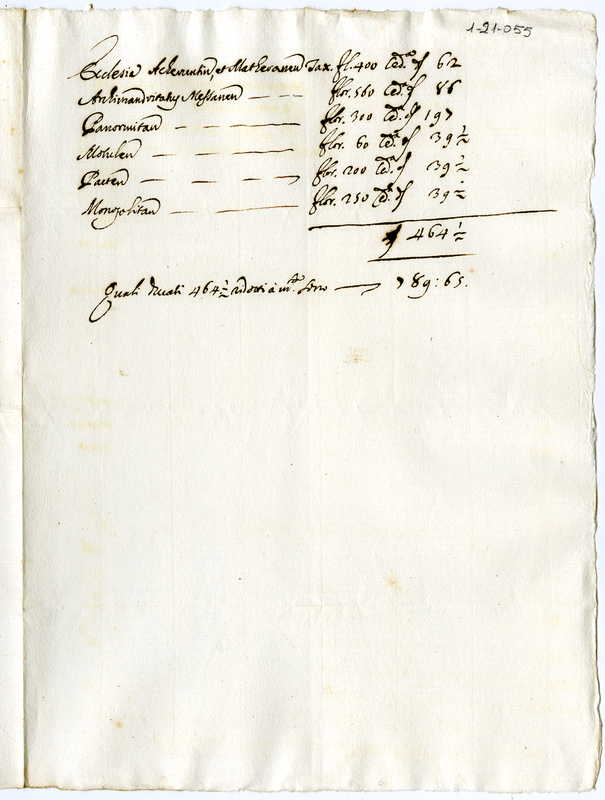 1-21-055
Ecclesia Acheruntin, et Matheranen Tax. fl. 400 Ced.ª 62
Archimandritatus Messanen flor. 560 Ced.ª 86
Panormitan flor. 300 Ced.ª 197
Mohilen flor. 60 Ced.ª 39 ½
Pacten flor. 200 Ced.ª 39 ½
Monopolitan flor. 250 Ced.ª 39 ½
464 ½
Quali ducati 464 ½ ridotti à 789:65.